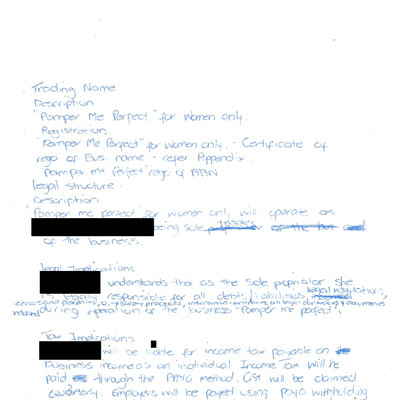 Trading Name
Description
"Pamper Me Perfect" for Women only.
Registration
"Pamper Me Perfect" for women only. - Certificate of
rego of Bus. name - refer Appendix
Pamper me Perfect rego of ABN
legal structure.
Description.
"Pamper me perfect" for women only, will operate as
being sole traders
of the business.
legal Implications
understands that as the sole proprietor she
is legally responsible for all debts, liabilities, legal
during operation of the business "Pamper me perfect".
Tax Implications
will be liable for income tax payable on
business income as an individual. Income Tax will be
paid through the PAYG method. GST will be claimed
Quarterly. Employees will be payed using PAYG withholding